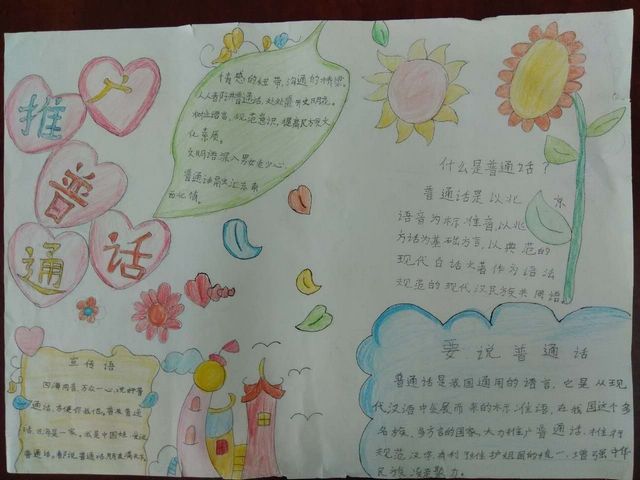 推广
普
通话
情感的纽带，沟通的桥梁，
人人言普通话，处处盛开文明花。
树立语言，规范意识，提高民族文
化素质。
文明语深入男女老少心
普通话飘出江东南
西北情。
什么是普通话？
普通话是以北京
语音为标准音，以北
方话为基础方言，以典范的
现代白话文著作为语法
规范的现代汉民族共同语
宣传语
四海同音，万众一心，说好普
通话，方便你我他。普及普通
话，四海是一家。我是中国娃，爱说
普通话。都说普通话，朋友满天下
要说普通话
普通话是我国通用的语言，它是从现
代汉语中发展而来的标准语，在我国这个多
名族、多方言的国家，大力推广普通话、推行
规范汉字，有利于维护祖国的统一、增强中华
民族凝聚力。